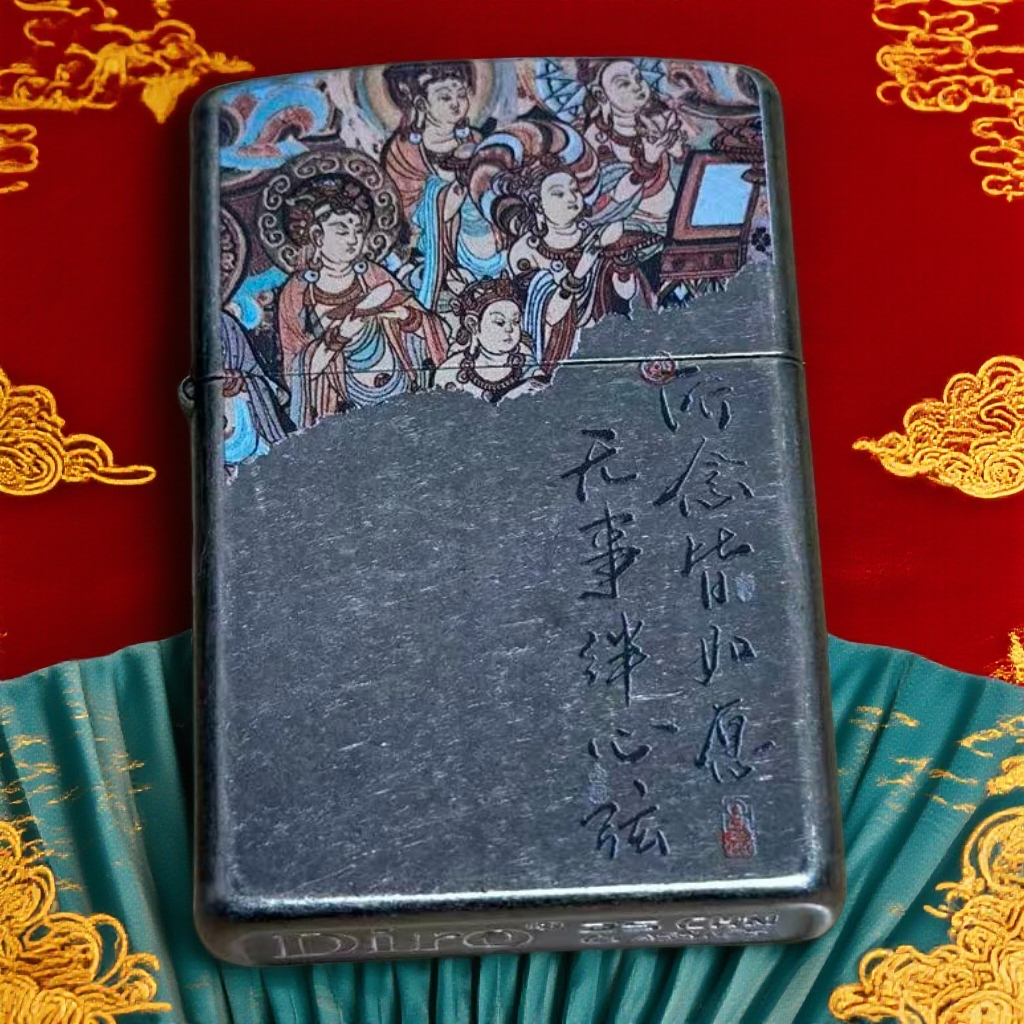 所念皆如愿
无事绊心弦
Diro